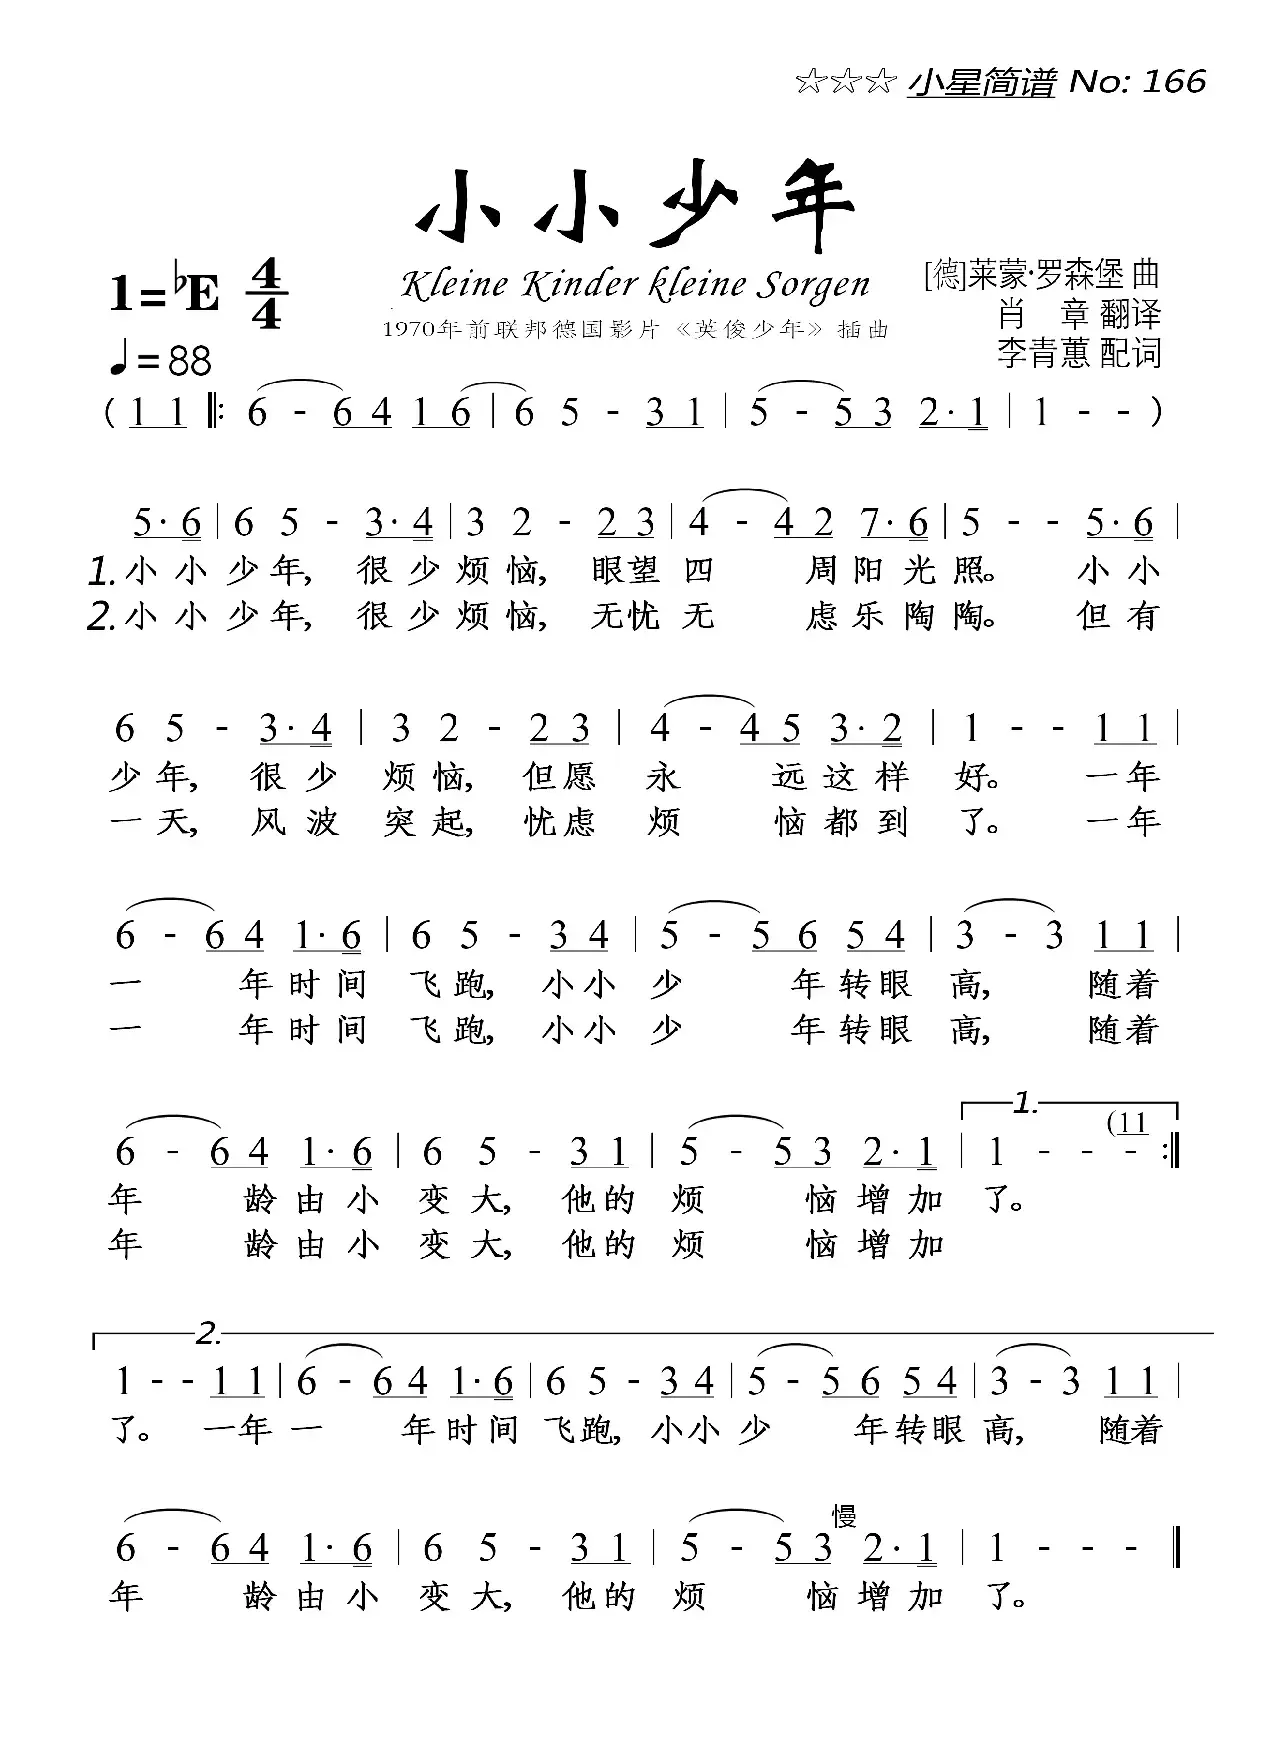 ☆☆☆ 小星简谱 No: 166
小小少年
Kleine Kinder kleine Sorgen
1970年前联邦德国影片《英俊少年》插曲
1=♭E 4/4
♩=88
[德]莱蒙·罗森堡 曲
肖 章 翻译
李青蕙 配词
( 1 1 ‖: 6 - 6 4 1 6 | 6 5 - 3 1 | 5 - 5 3 2· 1 | 1 - - )
5· 6 | 6 5 - 3· 4 | 3 2 - 2 3 | 4 - 4 2 7· 6 | 5 - - 5· 6 |
1. 小 小 少 年, 很 少 烦 恼, 眼望 四 周 阳 光 照。 小 小
2. 小 小 少 年, 很 少 烦 恼, 无忧 无 虑 乐 陶 陶。 但 有
6 5 - 3· 4 | 3 2 - 2 3 | 4 - 4 5 3· 2 | 1 - - 1 1 |
少 年, 很 少 烦 恼, 但愿 永 远 这 样 好。 一 年
一 天, 风 波 突 起, 忧虑 烦 恼 都 到 了。 一 年
6 - 6 4 1· 6 | 6 5 - 3 4 | 5 - 5 6 5 4 | 3 - 3 1 1 |
一 年 时 间 飞 跑, 小 小 少 年 转 眼 高, 随着
一 年 时 间 飞 跑, 小 小 少 年 转 眼 高, 随着
1.
6 - 6 4 1· 6 | 6 5 - 3 1 | 5 - 5 3 2· 1 | 1 - - - (11 :‖
年 龄 由 小 变 大, 他 的 烦 恼 增 加 了。
年 龄 由 小 变 大, 他 的 烦 恼 增 加
2.
1 - - 1 1 | 6 - 6 4 1· 6 | 6 5 - 3 4 | 5 - 5 6 5 4 | 3 - 3 1 1 |
了。 一年 一 年 时 间 飞 跑, 小小 少 年 转 眼 高, 随着
慢
6 - 6 4 1· 6 | 6 5 - 3 1 | 5 - 5 3 2· 1 | 1 - - - ‖
年 龄 由 小 变 大, 他 的 烦 恼 增 加 了。